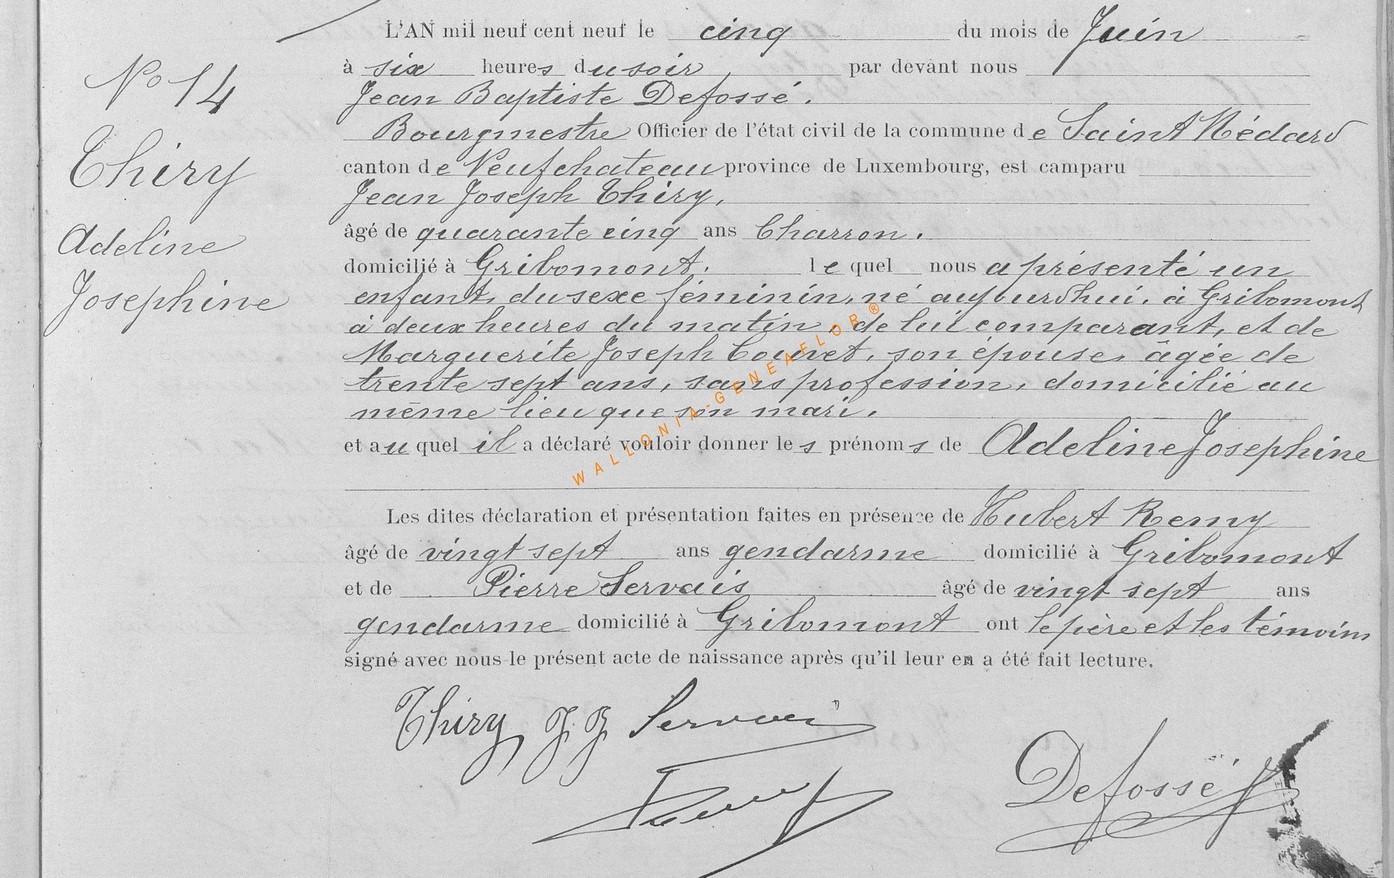 L'AN mil neuf cent neuf le cinq du mois de Juin
à six heures du soir par devant nous
Jean Baptiste Defossé.
Bourgmestre Officier de l'état civil de la commune de Saint Médard
canton de Neufchateau province de Luxembourg, est camparu
Jean Joseph Thiry,
âgé de quarante cinq ans Charron.
domicilié à Gribomont. lequel nous a présenté un
enfant, du sexe féminin, né aujourdhui, à Gribomont
à deux heures du matin, de lui comparant, et de
Marguerite Joseph Counet, son épouse, âgée de
trente sept ans, sans profession, domicilié au
même lieu que son mari.
et auquel il a déclaré vouloir donner les prénoms de Adeline Josephine
Les dites déclaration et présentation faites en présence de Hubert Remy
âgé de vingt sept ans gendarme domicilié à Gribomont
et de Pierre Servais âgé de vingt sept ans
gendarme domicilié à Gribomont ont le père et les témoins
signé avec nous le présent acte de naissance après qu'il leur en a été fait lecture.
Thiry, J. J. Servais
Remy
Defossé
No 14
Thiry
Adeline
Josephine
WALLONIA-GENEAFLOR®